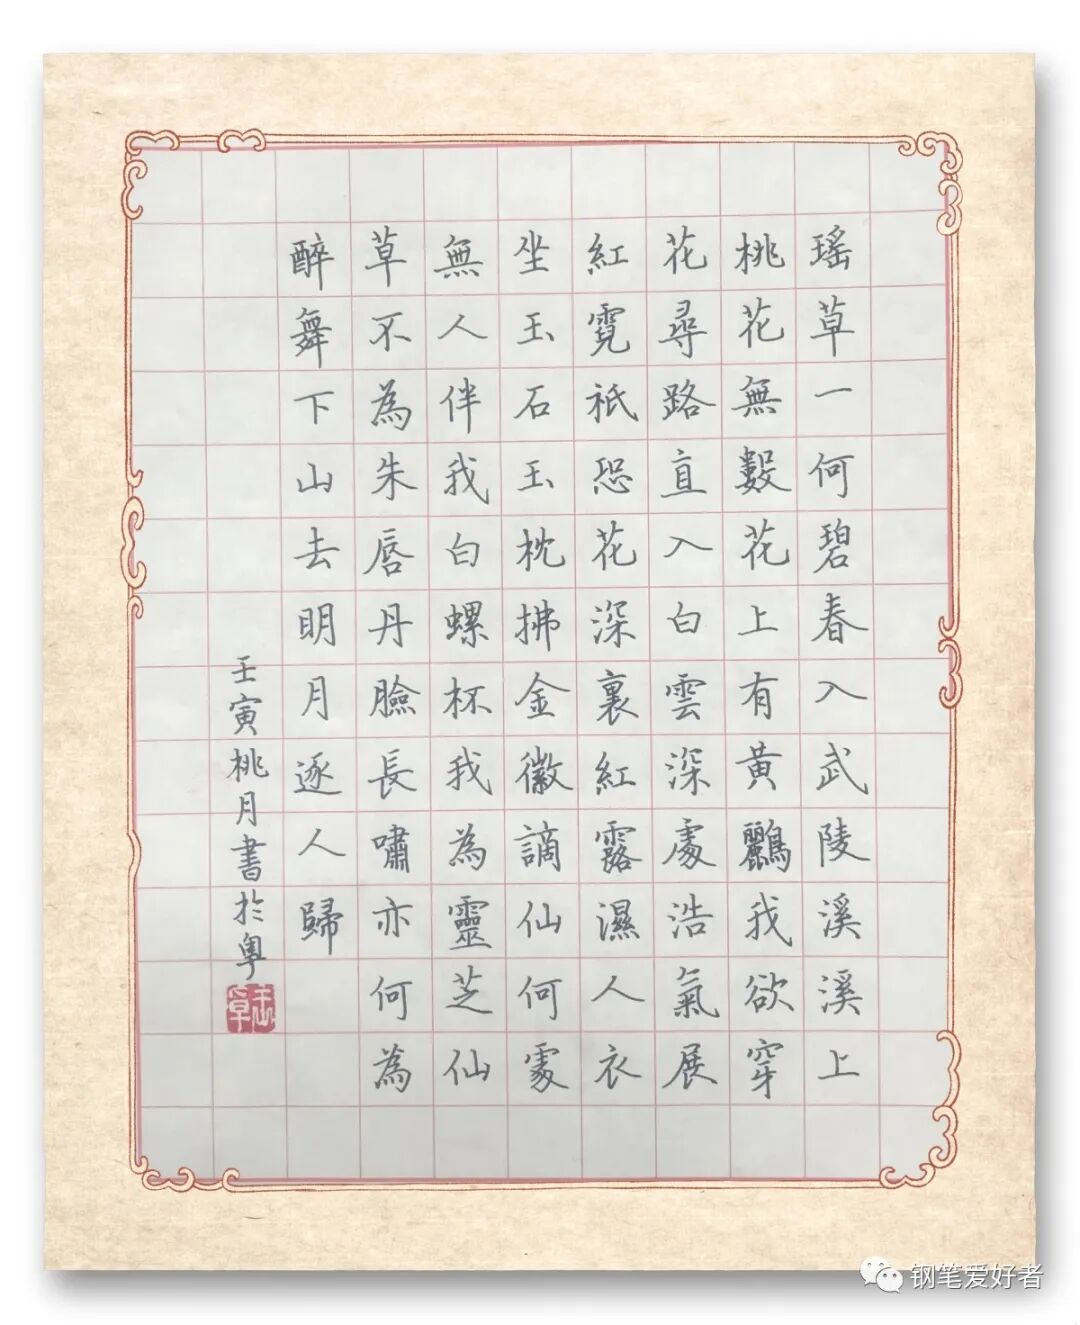 瑤草一何碧春入武陵溪溪上
桃花無數花上有黃鸝我欲穿
花尋路直入白雲深處浩氣展
紅霓祇恐花深裏紅露濕人衣
坐玉石玉枕拂金徽謫仙何處
無人伴我白螺杯我為靈芝仙
草不為朱唇丹臉長嘯亦何為
醉舞下山去明月逐人歸
壬寅桃月書於粵
钢笔爱好者